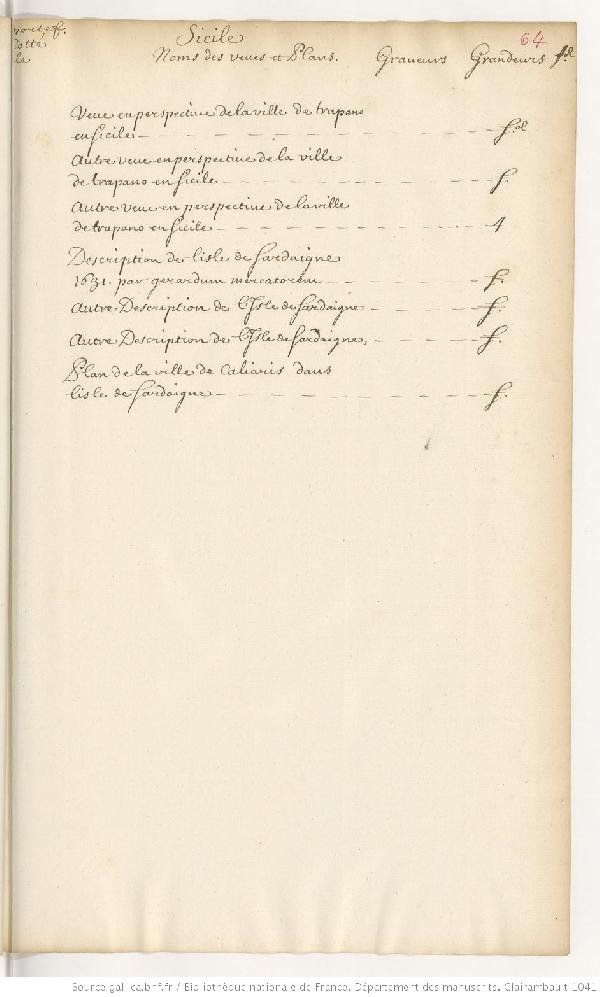 Sicile
64
Noms des veues et Plans. Graveurs Grandeurs
Veue en perspective de la ville de trapano
en sicile
Autre veue en perspective de la ville
de trapano en sicile f.
Autre veue en perspective de la ville
de trapano en sicile 4
Description de lisle de Sardaigne
1631. par gerardum mercatorem f.
Autre Description de l'Isle de Sardaigne f.
Autre Description de l'Isle de Sardaigne, f.
Plan de la ville de Caliaris dans
lisle de Sardaigne f.
Source gallica.bnf.fr / Bibliothèque nationale de France. Département des manuscrits. Clairambault 1041